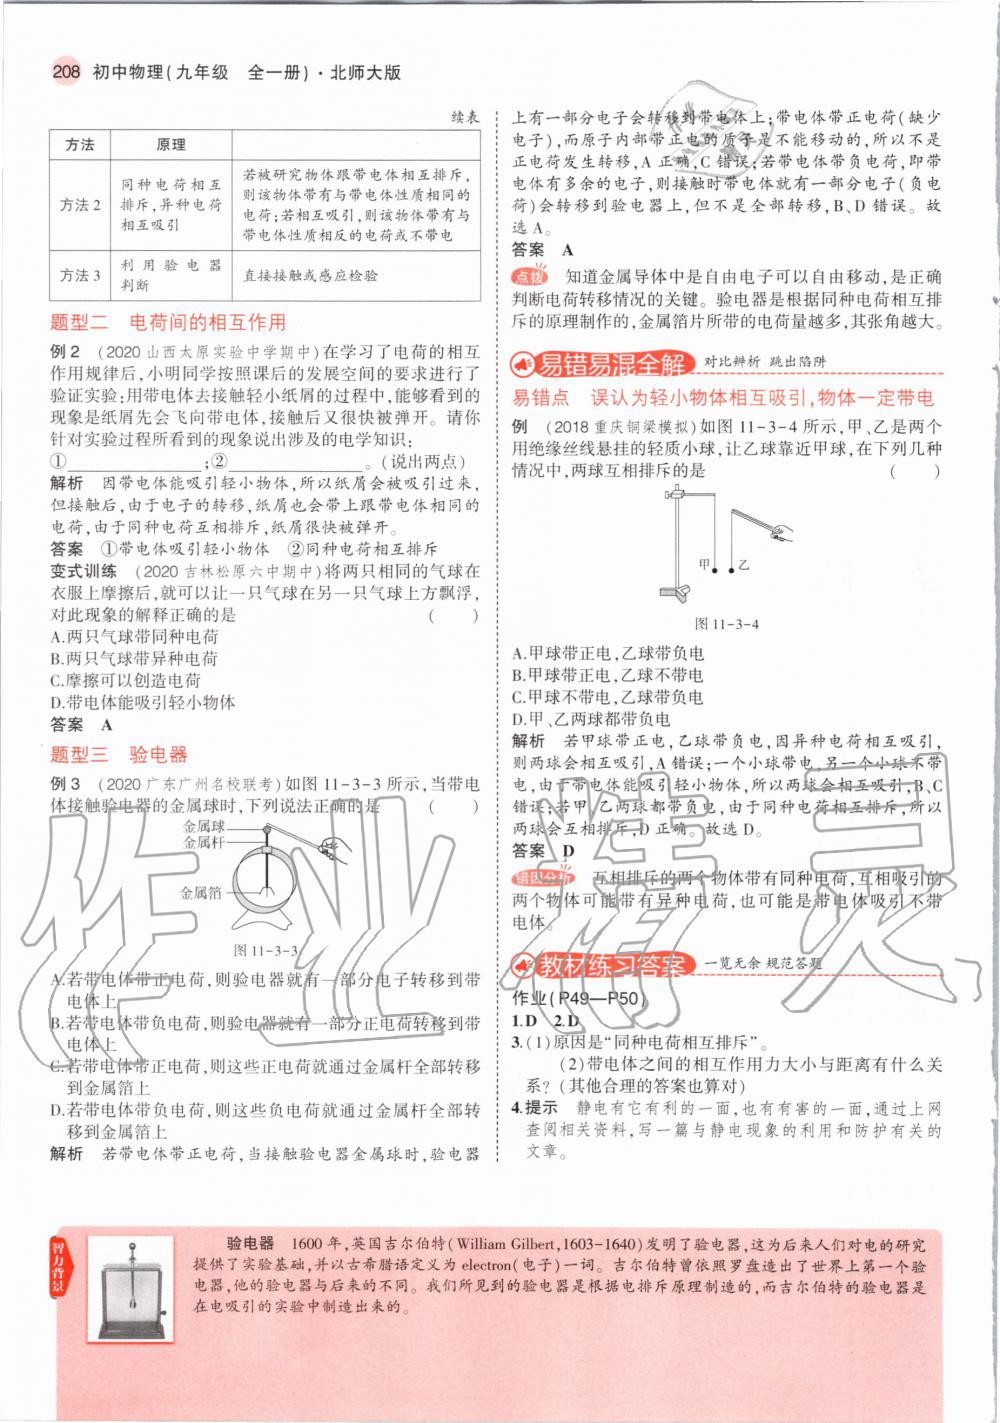 208 初中物理(九年级 全一册)·北师大版
续表
方法 原理
方法2
同种电荷相互
排斥,异种电荷
相互吸引
若被研究物体跟带电体相互排斥,
则该物体带有与带电体性质相同的
电荷;若相互吸引,则该物体带有与
带电体性质相反的电荷或不带电
方法3
利用验电器
判断
直接接触或感应检验
题型二 电荷间的相互作用
例2 (2020山西太原实验中学期中)在学习了电荷的相互
作用规律后,小明同学按照课后的发展空间的要求进行了
验证实验:用带电体去接触轻小纸屑的过程中,能够看到的
现象是纸屑先会飞向带电体,接触后又很快被弹开。请你
针对实验过程所看到的现象说出涉及的电学知识:
①______________;②______________。(说出两点)
解析 因带电体能吸引轻小物体,所以纸屑会被吸引过来,
但接触后,由于电子的转移,纸屑也会带上跟带电体相同的
电荷,由于同种电荷互相排斥,纸屑很快被弹开。
答案 ①带电体吸引轻小物体 ②同种电荷相互排斥
变式训练 (2020吉林松原六中期中)将两只相同的气球在
衣服上摩擦后,就可以让一只气球在另一只气球上方飘浮,
对此现象的解释正确的是 ( )
A.两只气球带同种电荷
B.两只气球带异种电荷
C.摩擦可以创造电荷
D.带电体能吸引轻小物体
答案 A
题型三 验电器
例3 (2020广东广州名校联考)如图11-3-3所示,当带电
体接触验电器的金属球时,下列说法正确的是 ( )
金属球
金属杆
金属箔
图11-3-3
A.若带电体带正电荷,则验电器就有一部分电子转移到带
电体上
B.若带电体带负电荷,则验电器就有一部分正电荷转移到带
电体上
C.若带电体带正电荷,则这些正电荷就通过金属杆全部转移
到金属箔上
D.若带电体带负电荷,则这些负电荷就通过金属杆全部转
移到金属箔上
解析 若带电体带正电荷,当接触验电器金属球时,验电器
上有一部分电子会转移到带电体上;带电体带正电荷(缺少
电子),而原子内部带正电的质子是不能移动的,所以不是
正电荷发生转移,A正确,C错误;若带电体带负电荷,即带
电体有多余的电子,则接触时带电体就有一部分电子(负电
荷)会转移到验电器上,但不是全部转移,B、D错误。故
选A。
答案 A
点拨 知道金属导体中是自由电子可以自由移动,是正确
判断电荷转移情况的关键。验电器是根据同种电荷相互排
斥的原理制作的,金属箔片所带的电荷量越多,其张角越大。
易错易混全解 对比辨析 跳出陷阱
易错点 误认为轻小物体相互吸引,物体一定带电
例 (2018重庆铜梁模拟)如图11-3-4所示,甲、乙是两个
用绝缘丝线悬挂的轻质小球,让乙球靠近甲球,在下列几种
情况中,两球互相排斥的是 ( )
甲 乙
图11-3-4
A.甲球带正电,乙球带负电
B.甲球带正电,乙球不带电
C.甲球不带电,乙球带负电
D.甲、乙两球都带负电
解析 若甲球带正电,乙球带负电,因异种电荷相互吸引,
则两球会相互吸引,A错误;一个小球带电,另一个小球不带
电,由于带电体能吸引轻小物体,所以两球会相互吸引,B、C
错误;若甲、乙两球都带负电,由于同种电荷相互排斥,所以
两球会互相排斥,D正确。故选D。
答案 D
错因分析 互相排斥的两个物体带有同种电荷,互相吸引的
两个物体可能带有异种电荷,也可能是带电体吸引不带
电体。
教材练习答案 一览无余 规范答题
作业(P49—P50)
1.D 2.D
3.(1)原因是“同种电荷相互排斥”。
(2)带电体之间的相互作用力大小与距离有什么关
系?(其他合理的答案也算对)
4.提示 静电有它有利的一面,也有有害的一面,通过上网
查阅相关资料,写一篇与静电现象的利用和防护有关的
文章。
智力背景
验电器 1600年,英国吉尔伯特(William Gilbert,1603-1640)发明了验电器,这为后来人们对电的研究
提供了实验基础,并以古希腊语定义为electron(电子)一词。吉尔伯特曾依照罗盘造出了世界上第一个验
电器,他的验电器与后来的不同。我们所见到的验电器是根据电排斥原理制造的,而吉尔伯特的验电器是
在电吸引的实验中制造出来的。
作业精灵